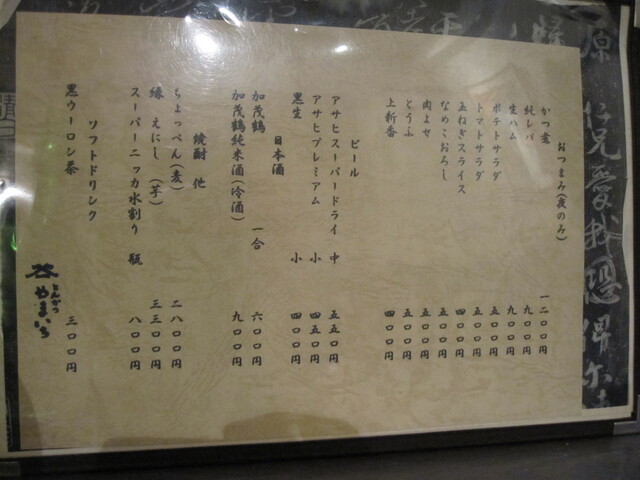 おつまみ(夜のみ)
かつ煮 一二〇〇円
純レバ 九〇〇円
生ハム 九〇〇円
ポテトサラダ 五〇〇円
トマトサラダ 五〇〇円
玉ねぎスライス 四〇〇円
なめこおろし 五〇〇円
肉よせ 五〇〇円
とうふ 五〇〇円
上新香 四〇〇円
ビール
アサヒスーパードライ 中 五五〇円
アサヒプレミアム 小 四五〇円
黒生 小 四〇〇円
日本酒
加茂鶴 一合 六〇〇円
加茂鶴純米酒(冷酒) 九〇〇円
焼酎 他
ちょっぺん(麦) 二八〇〇円
縁 えにし(芋) 三三〇〇円
スーパーニッカ水割り 瓶 八〇〇円
ソフトドリンク
黒ウーロン茶 三〇〇円
とんかつ
やまいち